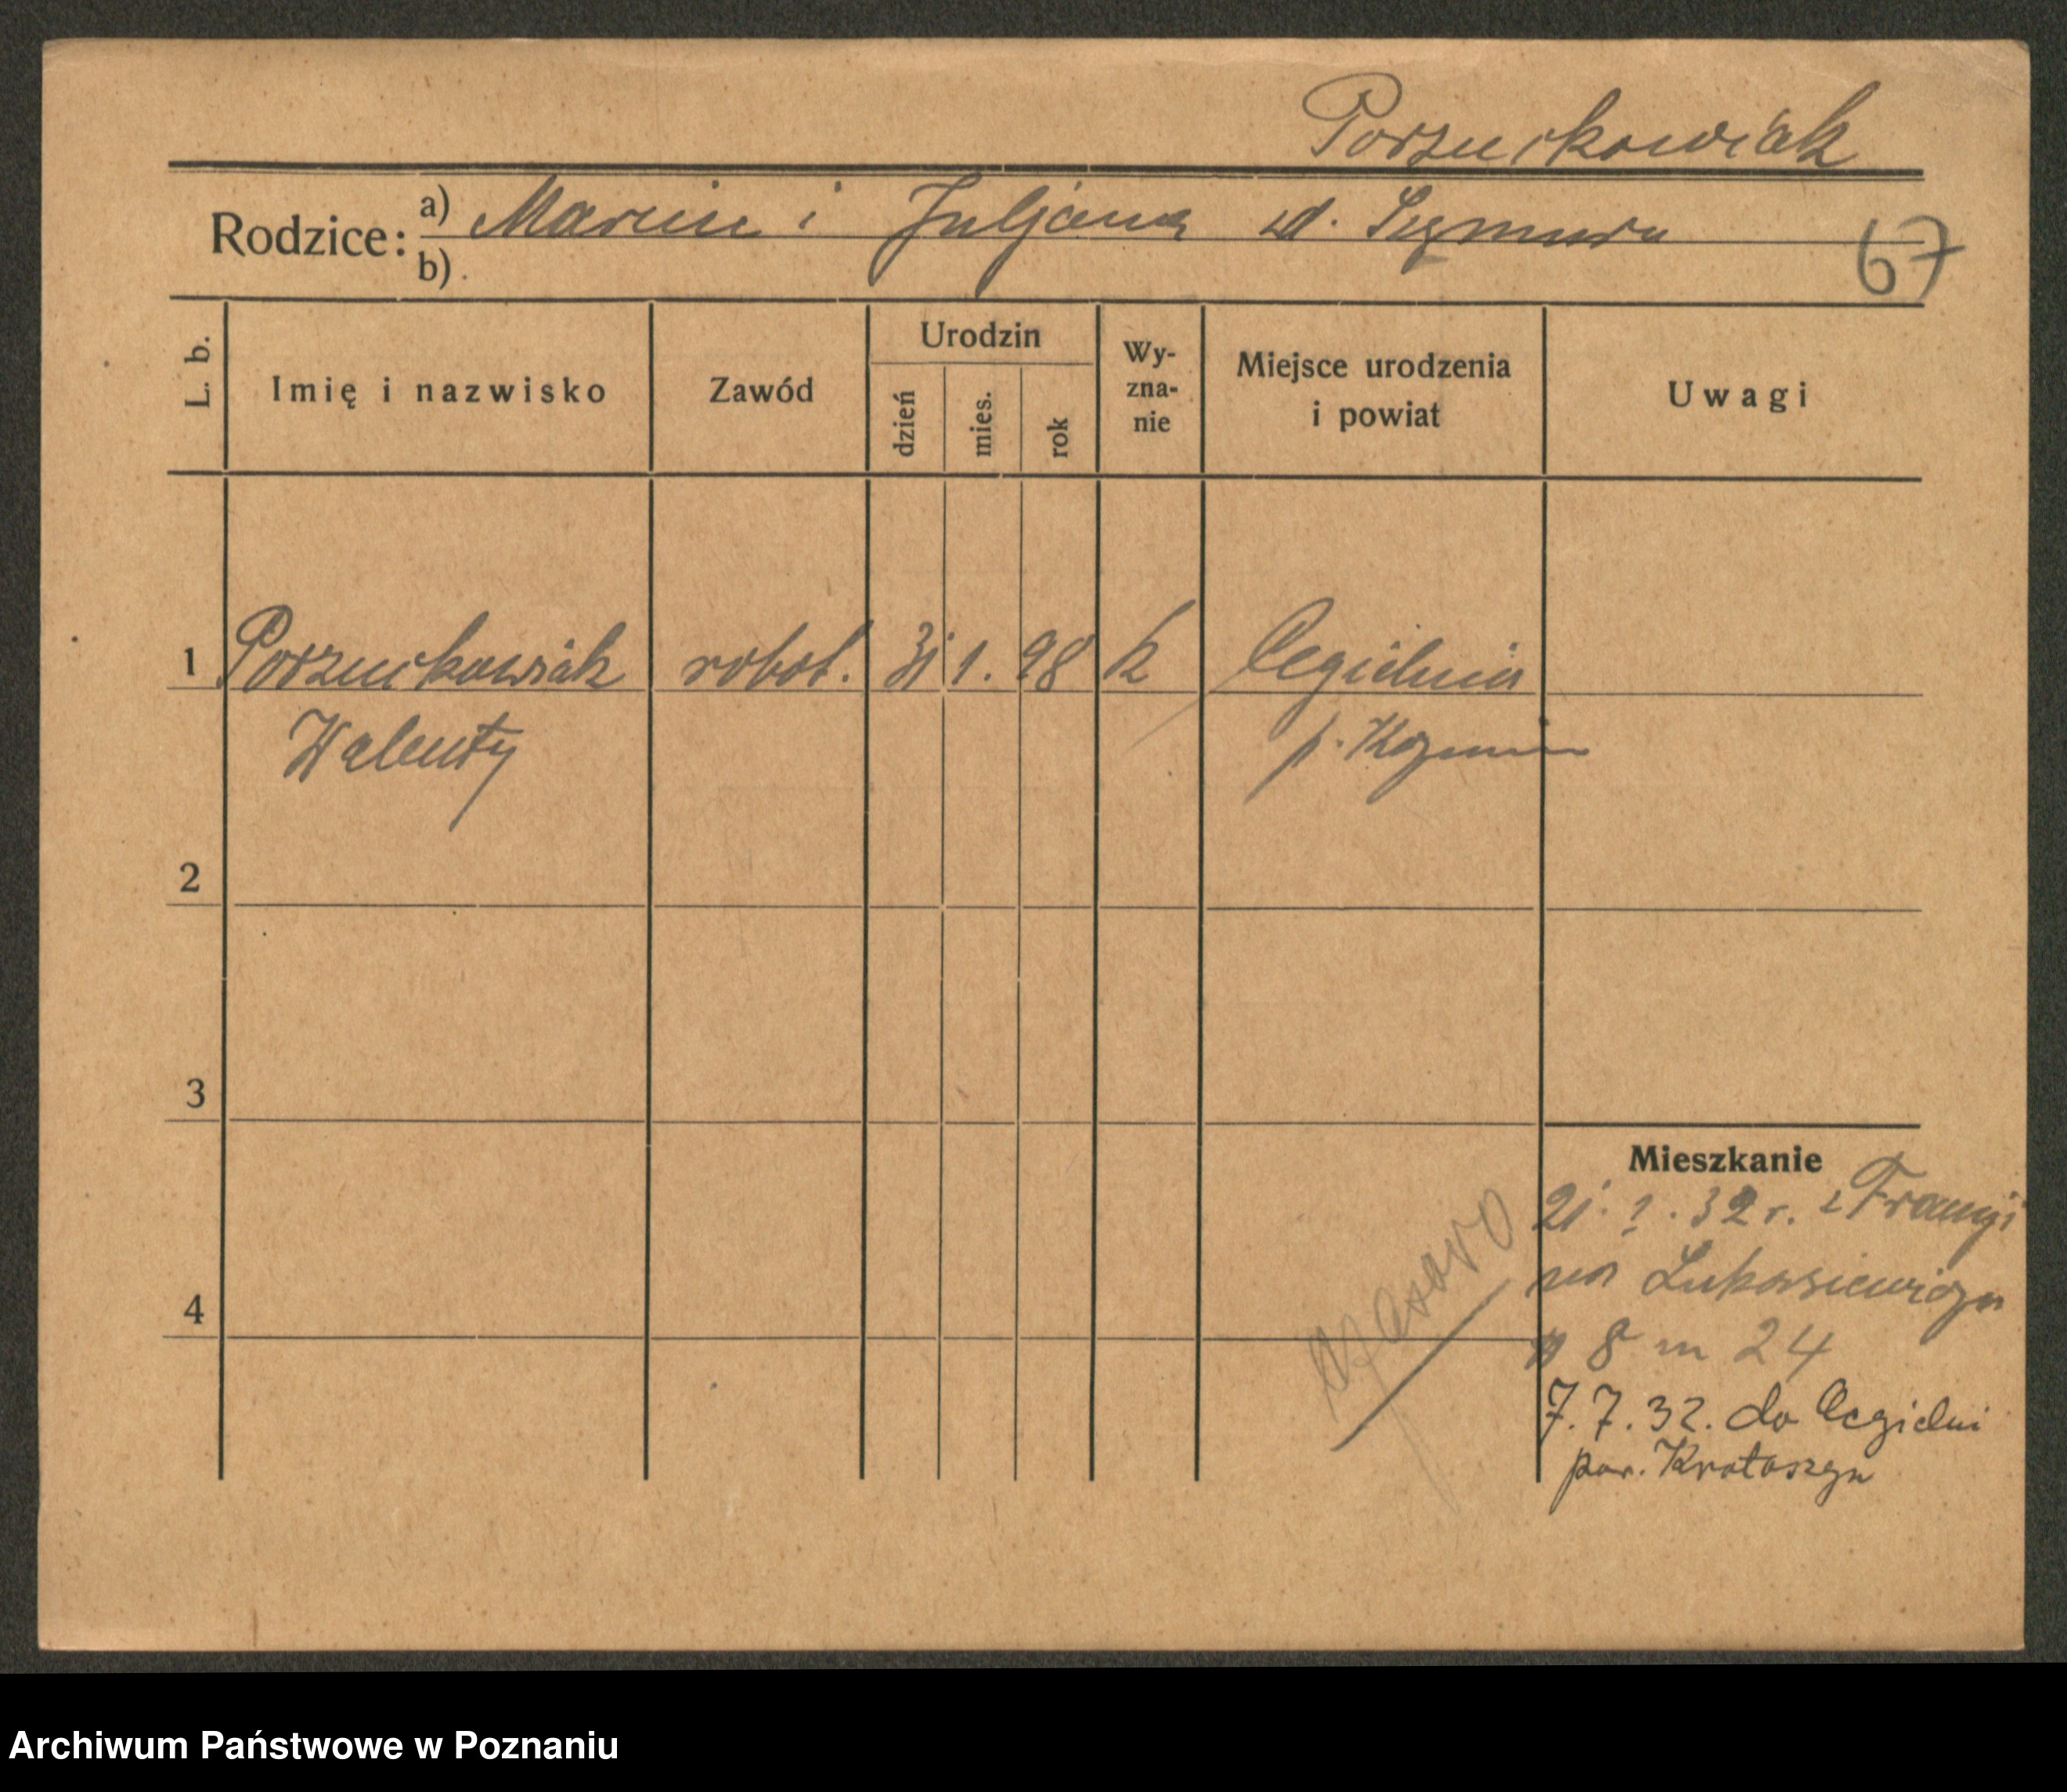 Porzuckowiak
Rodzice: a) Marcin i Juljana zd. Szymura
b)
67
L. b.
Imię i nazwisko
Zawód
Urodzin
dzień
mies.
rok
Wy-
zna-
nie
Miejsce urodzenia
i powiat
Uwagi
1 Porzuckowiak robot. 31 1. 98 k Cegielnia
Walenty p. Kozmin
2
3
4
Mieszkanie
21. 1. 32 r. z Francji
na Łukasiewicza
8 m 24
7. 7. 32. do Cegielni
pow. Krotoszyn
Archiwum Państwowe w Poznaniu